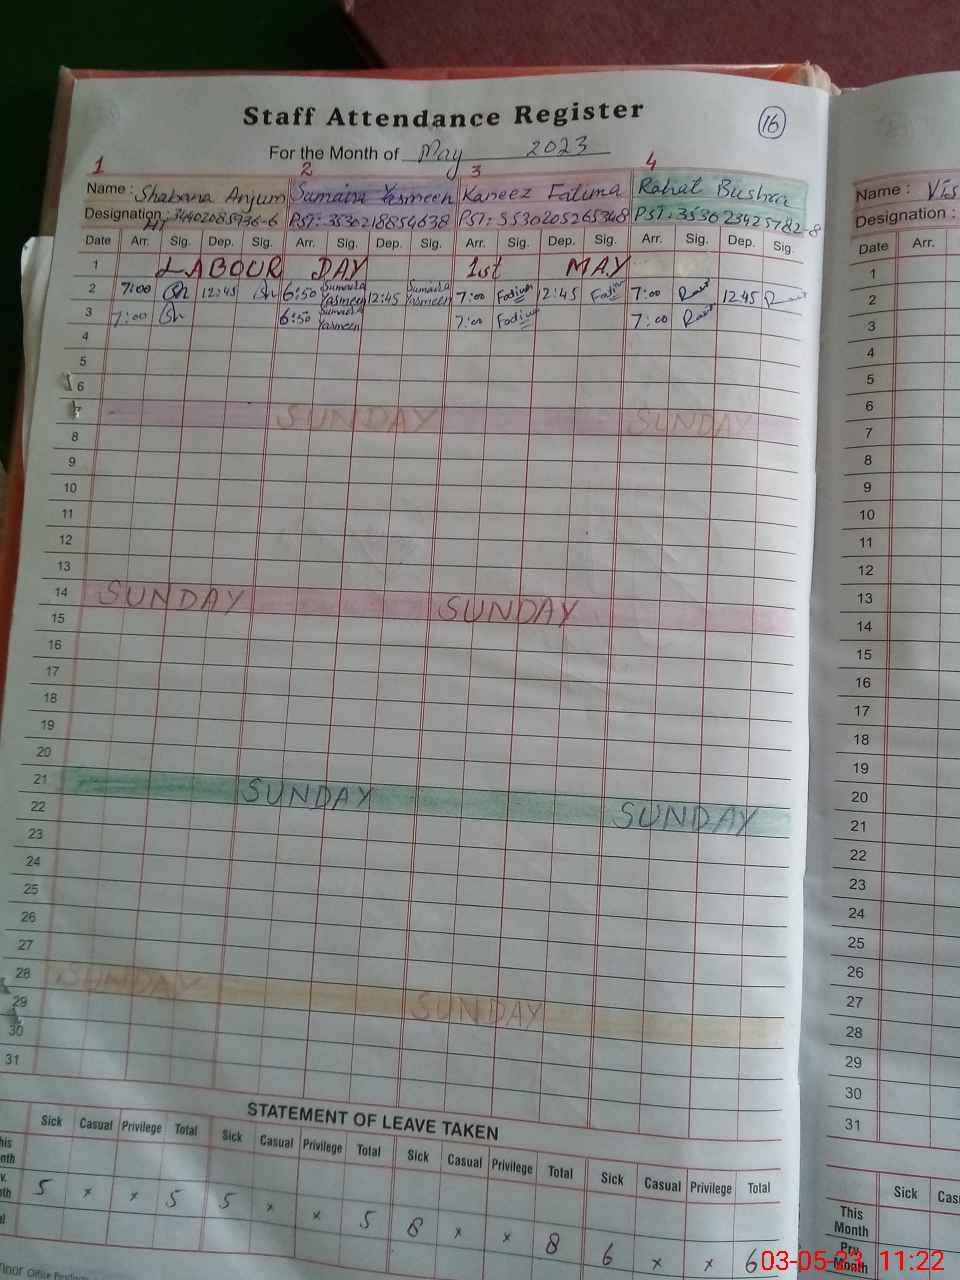 Staff Attendance Register
16
For the Month of May 2023
1 2 3 4
Name : Shabana Anjum Sumaira Yasmeen Kaneez Fatima Rahat Bushra
Designation : HT PST: 3530218854638 PST: 3530205265348 PST: 353023425782-8
Date Arr. Sig. Dep. Sig. Arr. Sig. Dep. Sig. Arr. Sig. Dep. Sig. Arr. Sig. Dep. Sig.
1 LABOUR DAY 1st MAY
2 7:00 12:45 6:50 Sumaira Yasmeen 12:45 Sumaira Yasmeen 7:00 Fatima 12:45 Fatima 7:00 12:45
3 7:00 6:50 Sumaira Yasmeen 7:00 Fatima 7:00
4
5
6
SUNDAY SUNDAY
8
9
10
11
12
13
14 SUNDAY SUNDAY
15
16
17
18
19
20
21 SUNDAY SUNDAY
22
23
24
25
26
27
28 SUNDAY SUNDAY
29
30
31
STATEMENT OF LEAVE TAKEN
Sick Casual Privilege Total Sick Casual Privilege Total Sick Casual Privilege Total Sick Casual Privilege Total
5 x x 5 5 x x 5 8 x x 8 6 x x 6
Name :
Designation :
Date Arr.
1
2
3
4
5
6
7
8
9
10
11
12
13
14
15
16
17
18
19
20
21
22
23
24
25
26
27
28
29
30
31
Sick
This Month
Prv. Month
03-05-23 11:22